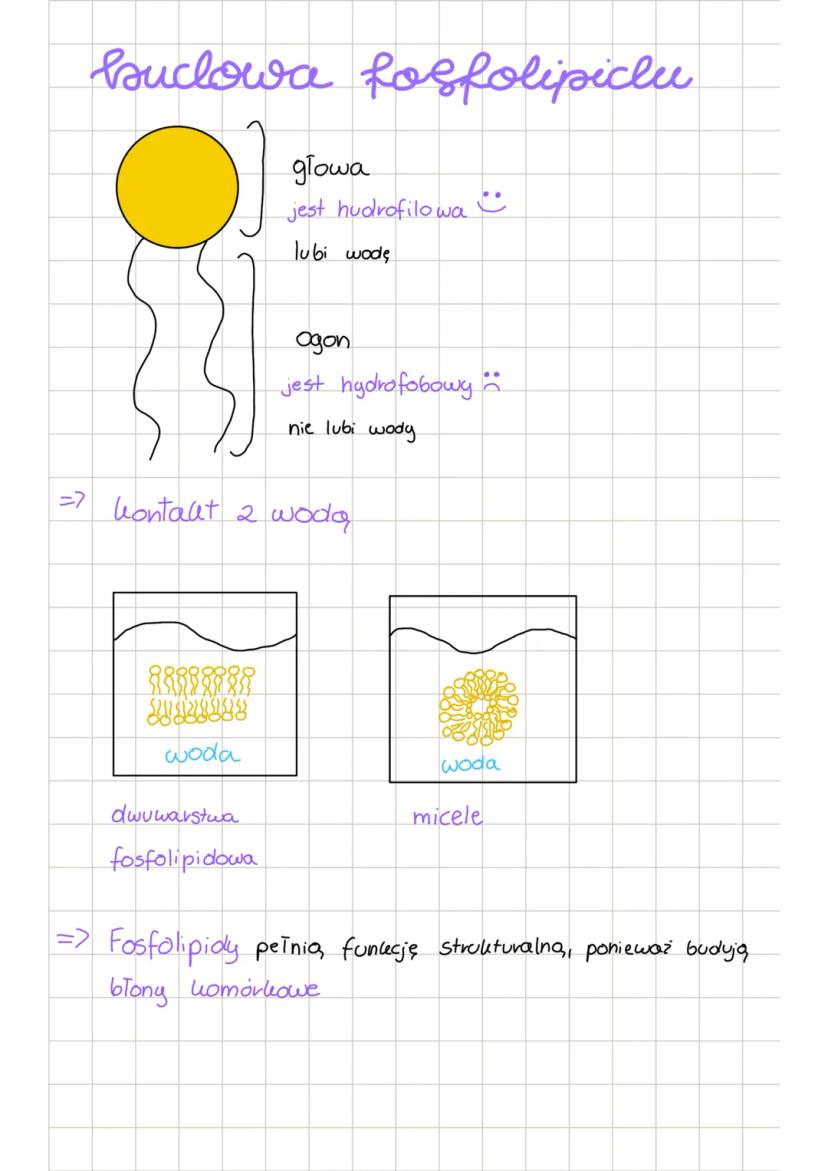 budowa fosfolipidu
głowa
jest hudrofilowa
lubi wodę
ogon
jest hydrofobowy
nie lubi wody
=> kontakt z wodą
woda
woda
dwuwarstwa
fosfolipidowa
micele
=> Fosfolipidy pełnią funkcję strukturalną, ponieważ budują
błony komórkowe